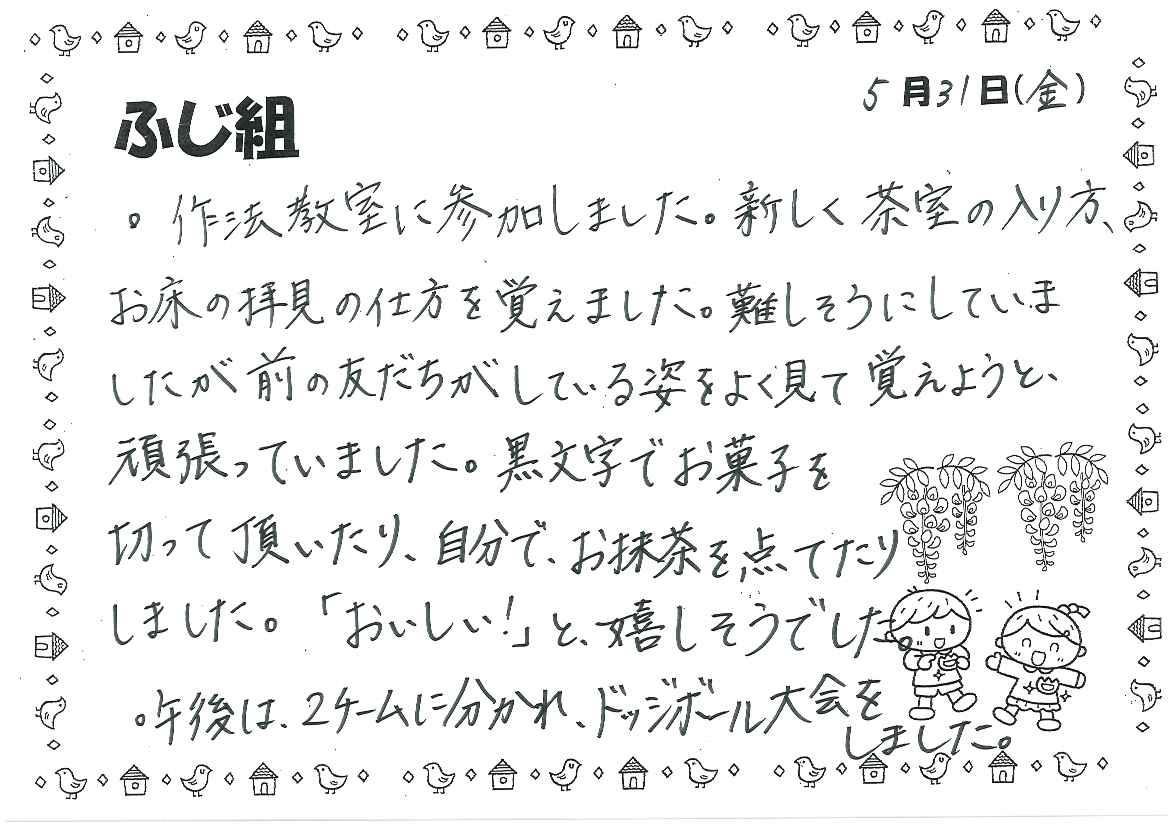 5月31日(金)
ふじ組
。作法教室に参加しました。新しく茶室の入り方、
お床の拝見の仕方を覚えました。難しそうにしていま
したが前の友だちがしている姿をよく見て覚えようと、
頑張っていました。黒文字でお菓子を
切って頂いたり、自分で、お抹茶を点てたり
しました。「おいしい!」と、嬉しそうでした。
。午後は、2チームに分かれ、ドッジボール大会を
しました。